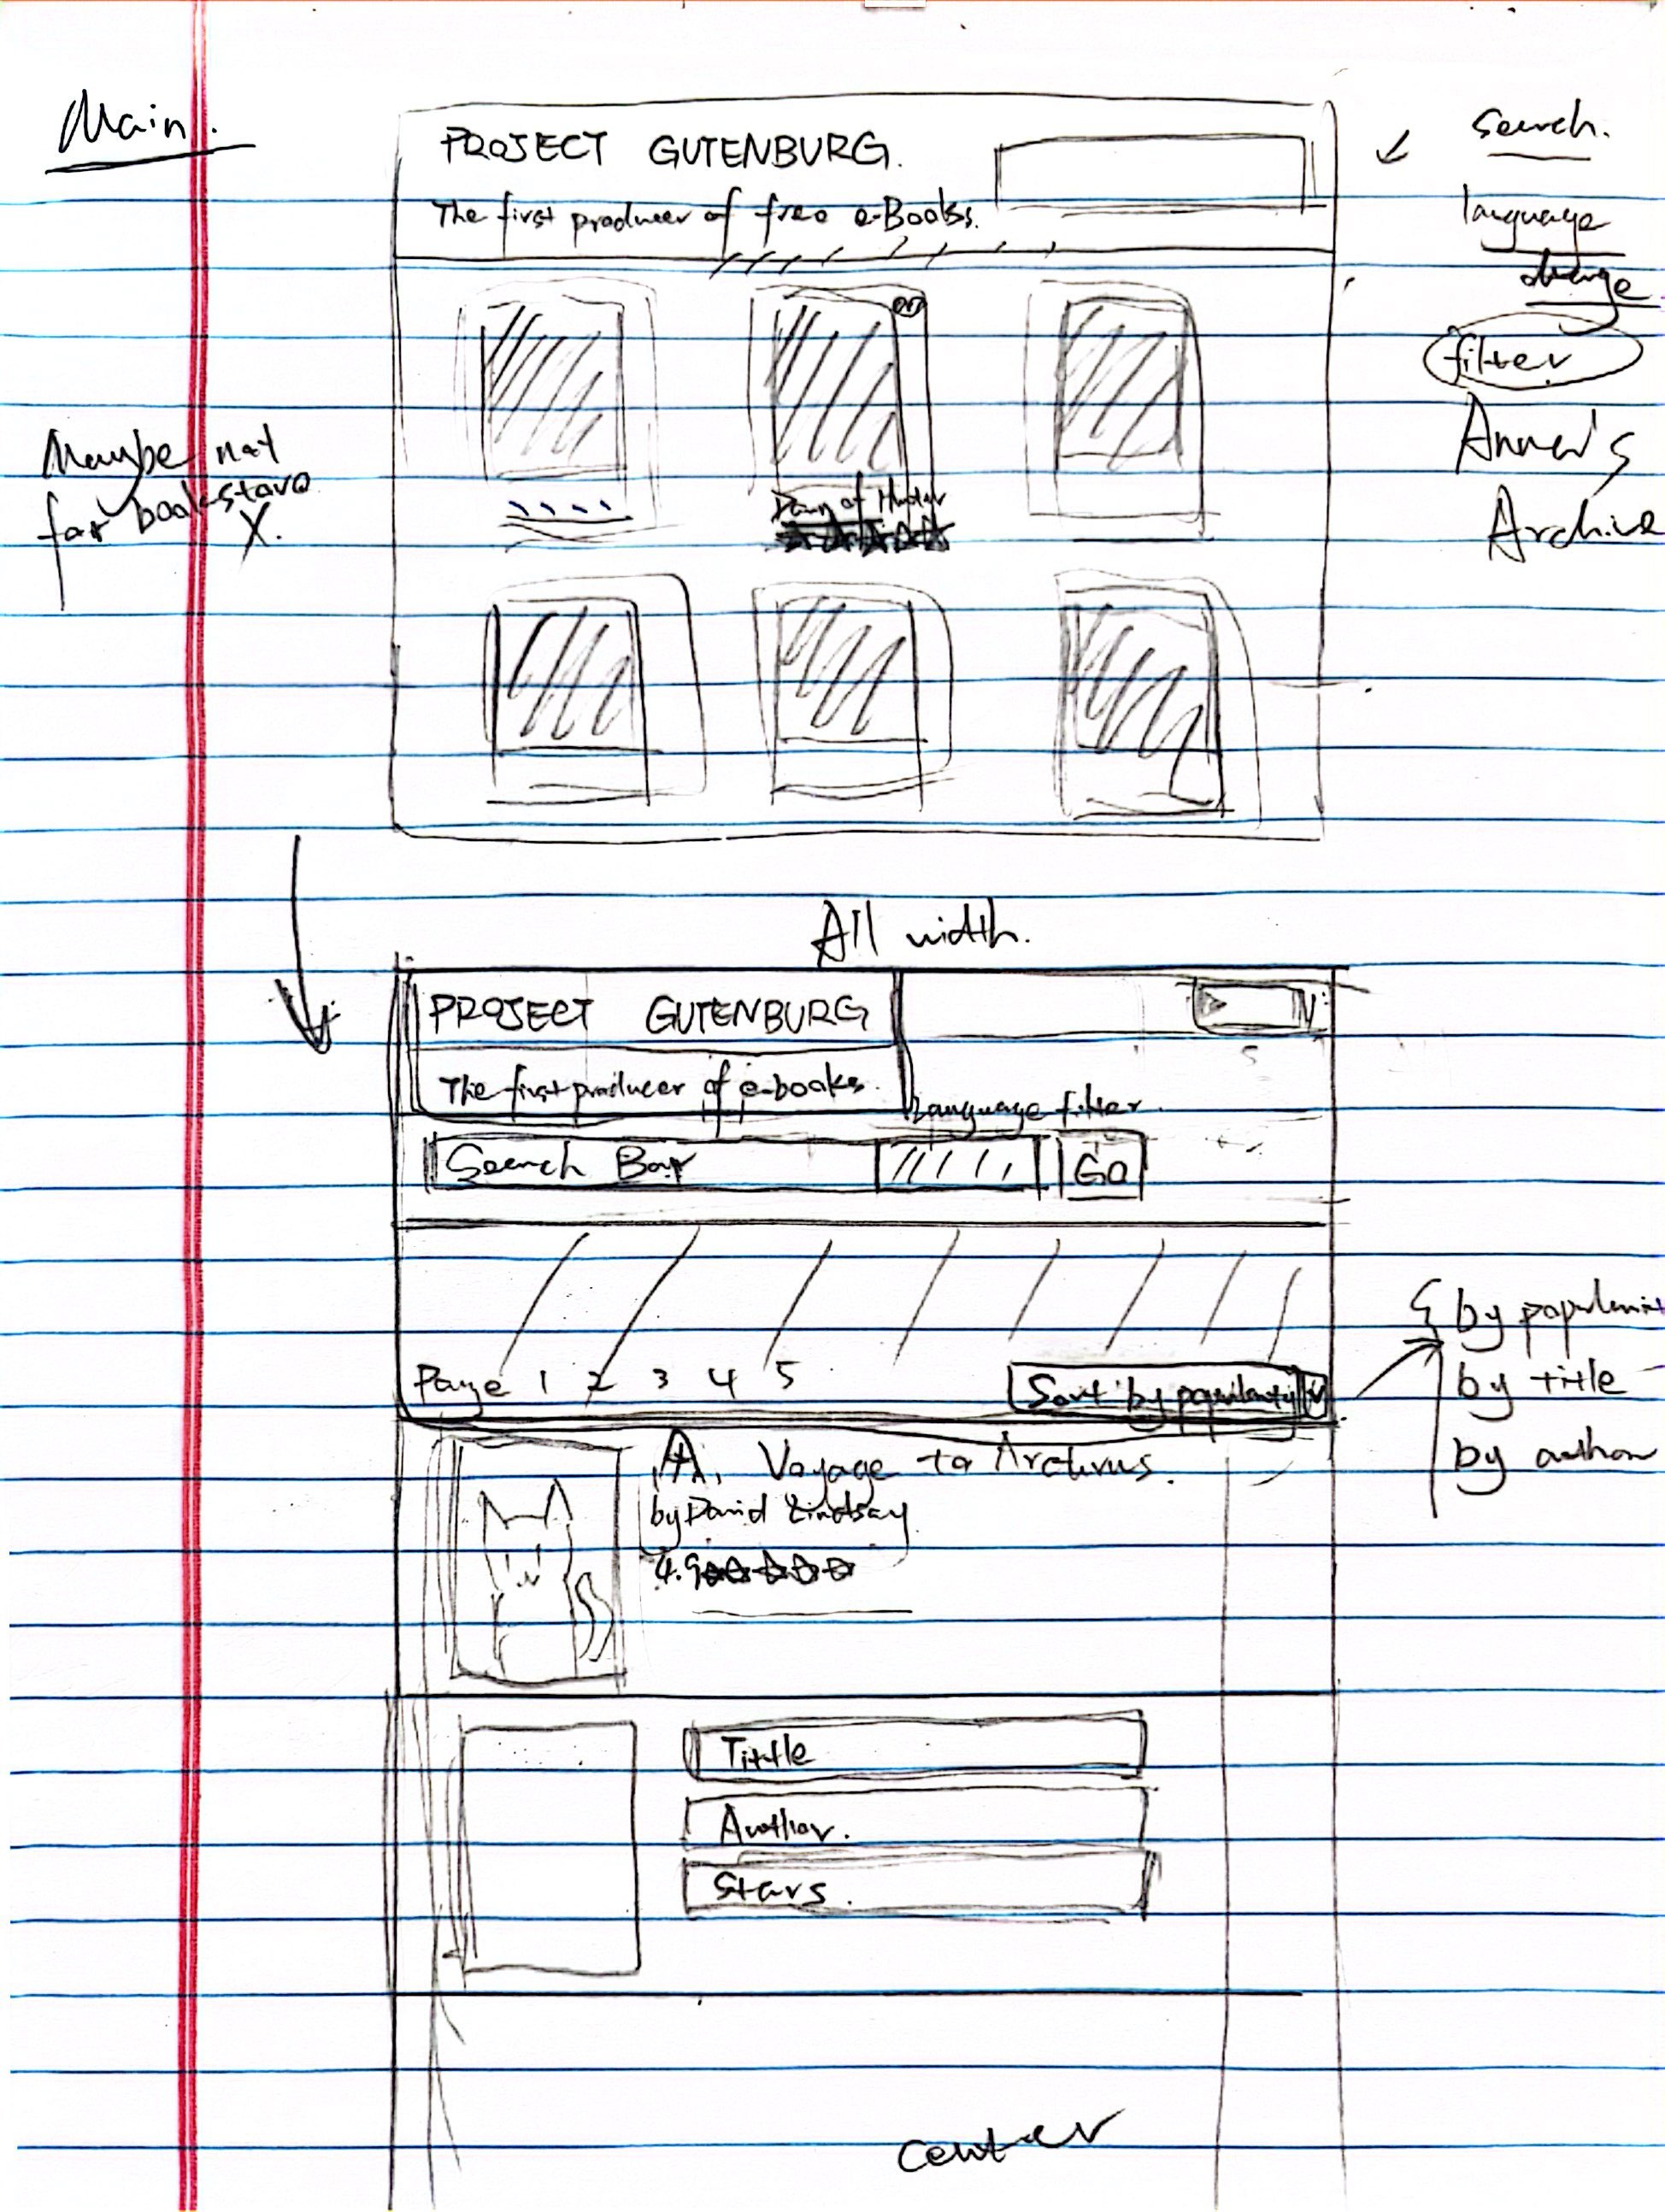 Main.
PROJECT GUTENBURG.
The first producer of free e-Books.
Search.
language
change
filter
Anna's
Archive
Maybe not
for bookstore
X.
of
All width.
PROJECT GUTENBURG
The first producer of e-books.
Language filter.
Search Bar
Go
Page 1 2 3 4 5
Sort by popularity
by
by title
by author
A Voyage to Arcturus.
by David Lindsay
4.9 ☆☆☆☆☆
Tittle
Author.
Stars.
center